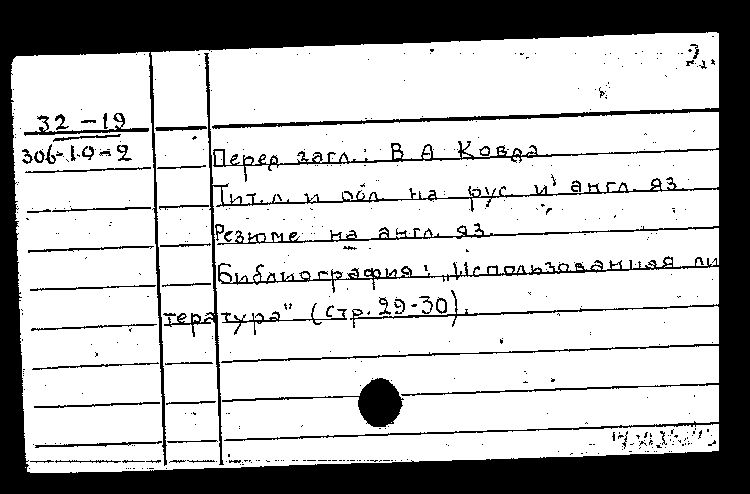 2.
32 - 19
306-19-2
Перед загл.: В А Ковда
Тит.л. и обл. на рус и англ. яз
Резюме на англ. яз.
Библиография: „Использованная ли
тература" (стр. 29-30).